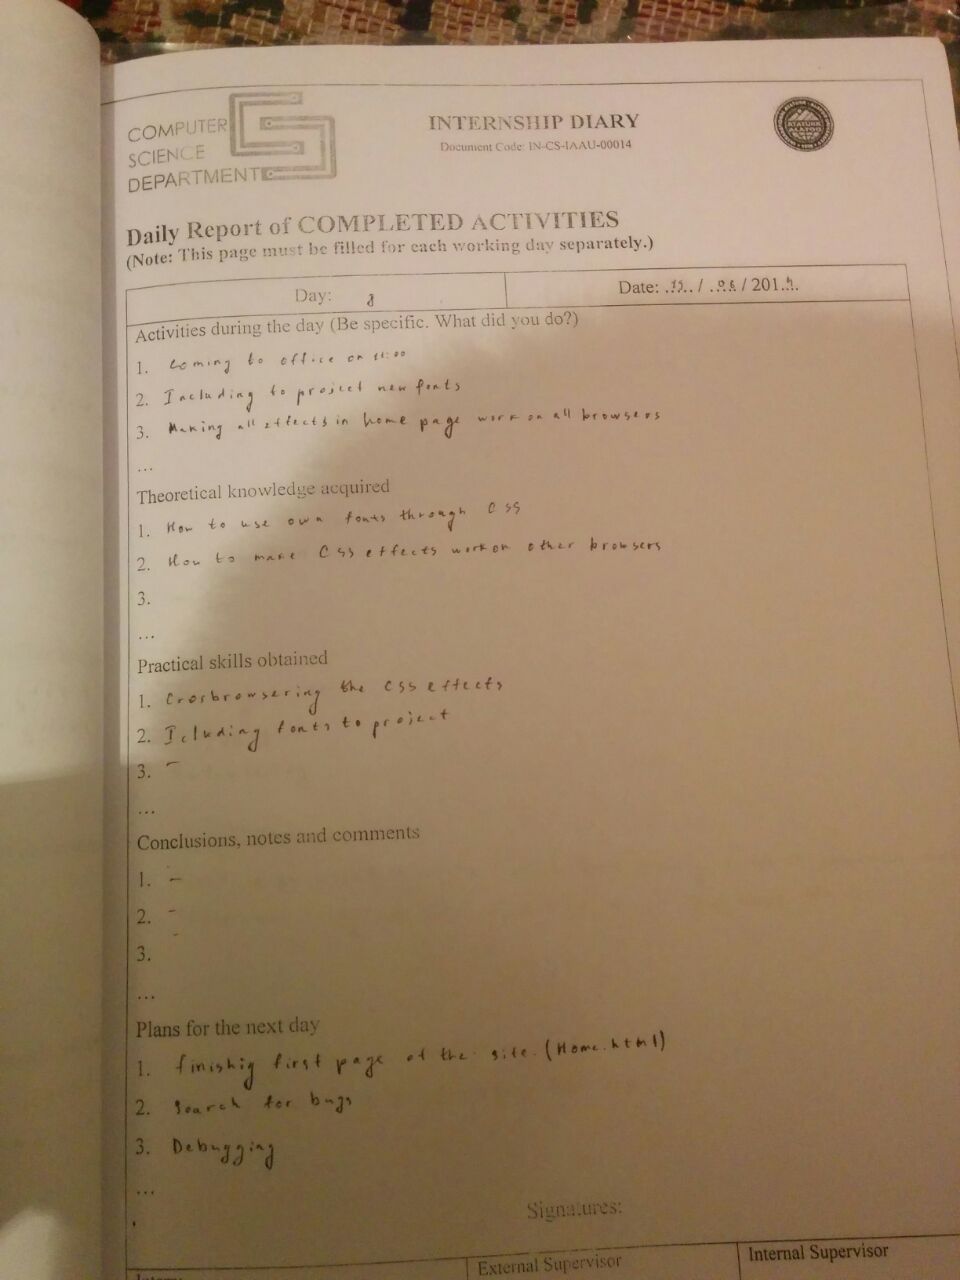 COMPUTER
SCIENCE
DEPARTMENT
INTERNSHIP DIARY
Document Code: IN-CS-IAAU-00014
Daily Report of COMPLETED ACTIVITIES
(Note: This page must be filled for each working day separately.)
Day: 8
Date: / 06 / 201
Activities during the day (Be specific. What did you do?)
1. Coming to office on 11:00
2. Including to project new fonts
3. Making all effects in home page work on all browsers
...
Theoretical knowledge acquired
1. How to use own fonts through CSS
2. How to make CSS effects work on other browsers
3.
...
Practical skills obtained
1. Crosbrowsering the CSS effects
2. Icluding fonts to project
3. –
...
Conclusions, notes and comments
1. –
2. –
3.
...
Plans for the next day
1. finishig first page of the site. (Home.html)
2. Search for bugs
3. Debugging
...
Signatures:
Intern
External Supervisor
Internal Supervisor